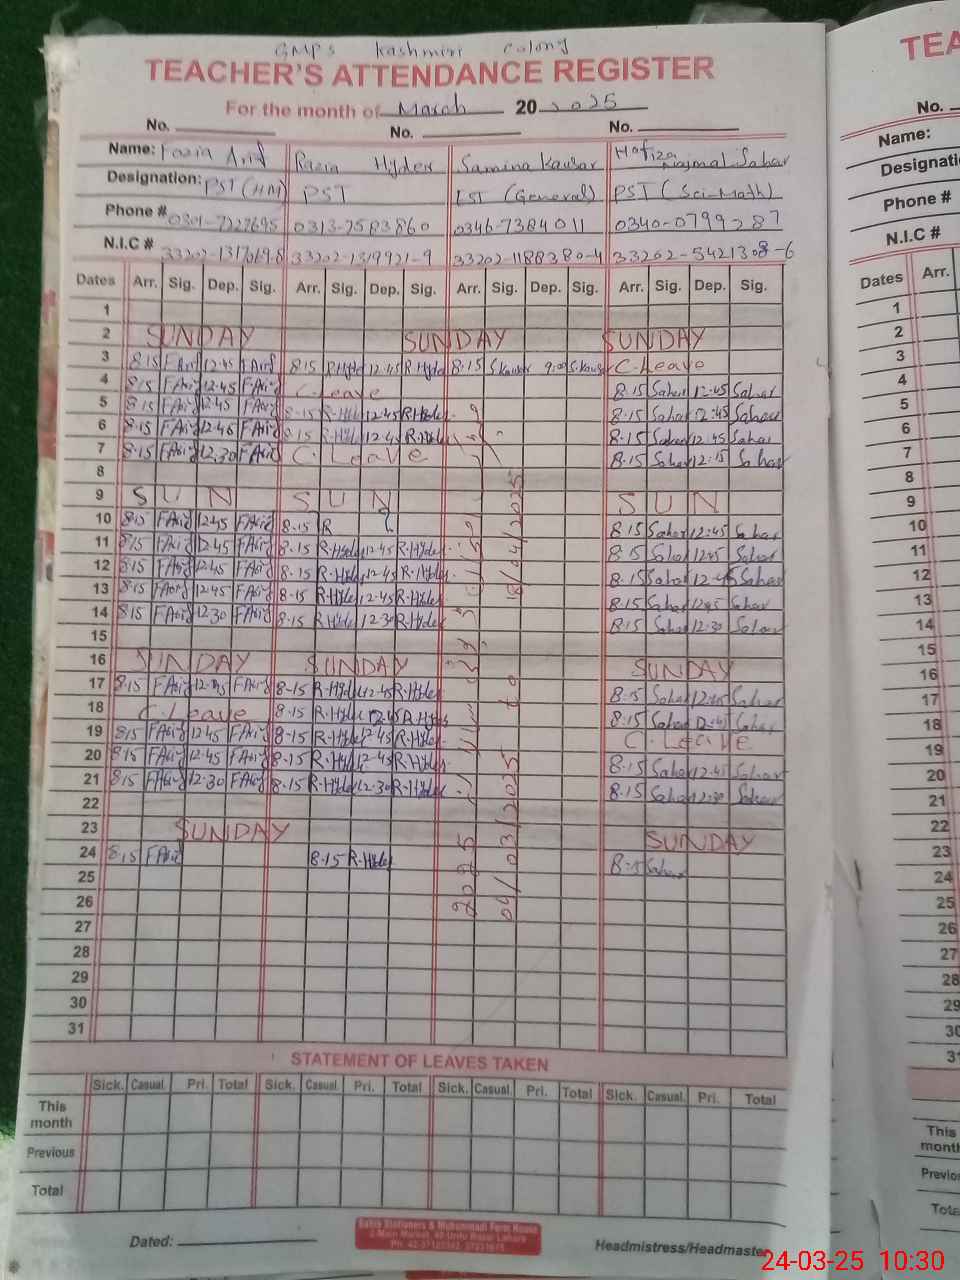 GMPS Kashmiri Colony
TEACHER'S ATTENDANCE REGISTER
For the month of March 20 2025
No. No. No.
Name: Fozia Arif Razia Hyder Samina Kausar Hafiza Najmal Sahar
Designation: PST (HM) PST EST (General) PST (Sci-Math)
Phone # 0301-7227695 0313-7583860 0346-7384011 0340-0799287
N.I.C # 33202-1319921-9 33202-1188380-4 33202-5421308-6
Dates Arr. Sig. Dep. Sig. Arr. Sig. Dep. Sig. Arr. Sig. Dep. Sig. Arr. Sig. Dep. Sig.
1
2 SUNDAY SUNDAY SUNDAY
3 8.15 F Arif 12.45 F Arif 8.15 R.Hyder 12.45 R Hyder 8.15 S.Kausar 9:00 S.Kausar C.Leave
4 8.15 F Arif 12.45 F Arif C.Leave 8.15 Sahar 12:45 Sahar
5 8.15 F Arif 12.45 F Arif 8-15 R-Hyder 12.45 R.Hyder 8.15 Sahar 12:45 Sahar
6 8.15 F Arif 12.45 F Arif 8.15 R.Hyder 12.45 R.Hyder 8.15 Sahar 12.45 Sahar
7 8.15 F Arif 12.30 F Arif C. Leave 8.15 Sahar 12:15 Sahar
8
9 SUN SUN SUN
10 8.15 F Arif 12.45 F Arif 8.15 R 8.15 Sahar 12:45 Sahar
11 8.15 F Arif 12.45 F Arif 8.15 R.Hyder 12.45 R.Hyder 8.15 Sahar 12.45 Sahar
12 8.15 F Arif 12.45 F Arif 8.15 R.Hyder 12.45 R.Hyder 8.15 Sahar 12.45 Sahar
13 8.15 F Arif 12.45 F Arif 8.15 R.Hyder 12.45 R.Hyder 8.15 Sahar 12.45 Sahar
14 8.15 F Arif 12.30 F Arif 8.15 R.Hyder 12.30 R.Hyder 8.15 Sahar 12.30 Sahar
15
16 SUNDAY SUNDAY SUNDAY
17 8.15 F Arif 12.45 F Arif 8-15 R.Hyder 12.45 R.Hyder 8.15 Sahar 12.45 Sahar
18 C.Leave 8.15 R.Hyder 12.45 R.Hyder 8.15 Sahar 12:45 Sahar
19 8.15 F Arif 12.45 F Arif 8-15 R.Hyder 12-45 R.Hyder C.LEAVE
20 8.15 F Arif 12.45 F Arif 8.15 R.Hyder 12.45 R.Hyder 8.15 Sahar 12.45 Sahar
21 8.15 F Arif 12.30 F Arif 8.15 R.Hyder 12.30 R.Hyder 8.15 Sahar 12:30 Sahar
22
23 SUNDAY SUNDAY
24 8.15 F Arif 8.15 R.Hyder 8.15 Sahar
25
26
27
28
29
30
31
2025
04/03/2025 to 18/04/2025
STATEMENT OF LEAVES TAKEN
Sick. Casual. Pri. Total Sick. Casual. Pri. Total Sick. Casual. Pri. Total Sick. Casual. Pri. Total
This month
Previous
Total
Dated: Headmistress/Headmaster
TEA
No.
Name:
Designati
Phone #
N.I.C #
Dates Arr.
1
2
3
4
5
6
7
8
9
10
11
12
13
14
15
16
17
18
19
20
21
22
23
24
25
26
27
28
29
30
This
Previo
24-03-25 10:30